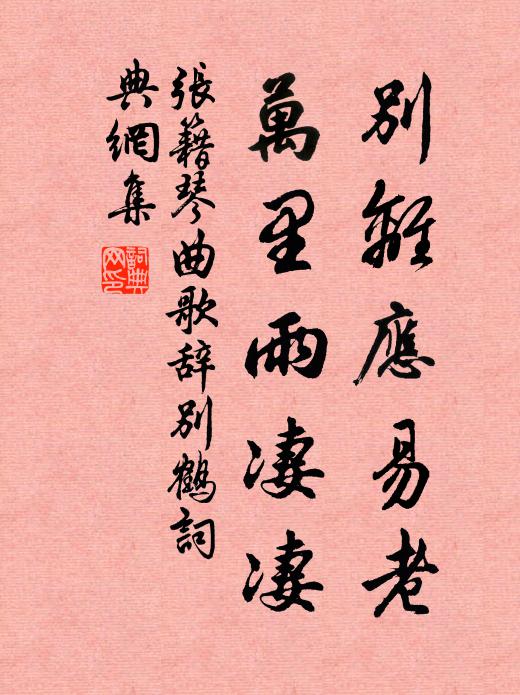 別離應易老
萬里雨淒淒
張籍琴曲歌辞別鶴詞
典網集
詞典
网印